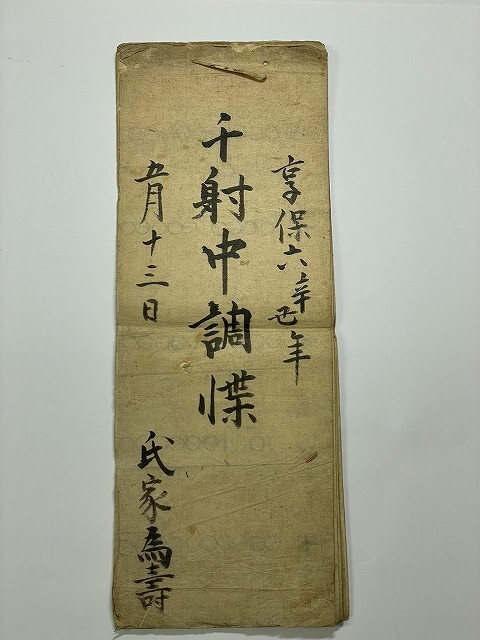 享保六辛丑年
千射中調惵
五月十三日
氏家為壽